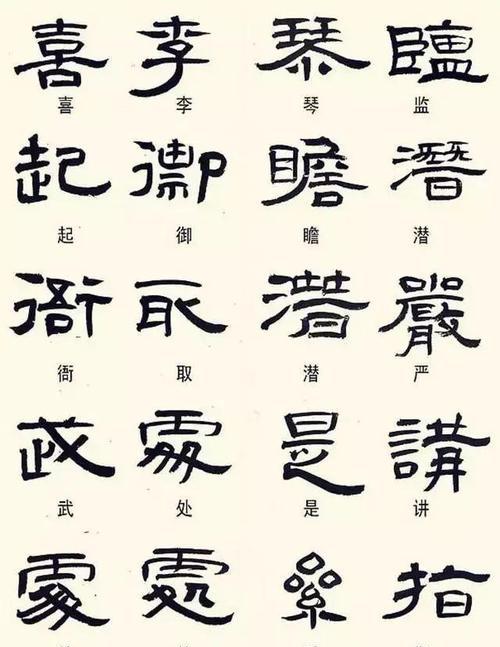 喜 李 琴 監
喜 李 琴 监
起 御 瞻 潛
起 御 瞻 潜
衙 取 潛 嚴
衙 取 潜 严
武 處 是 講
武 处 是 讲
處 指